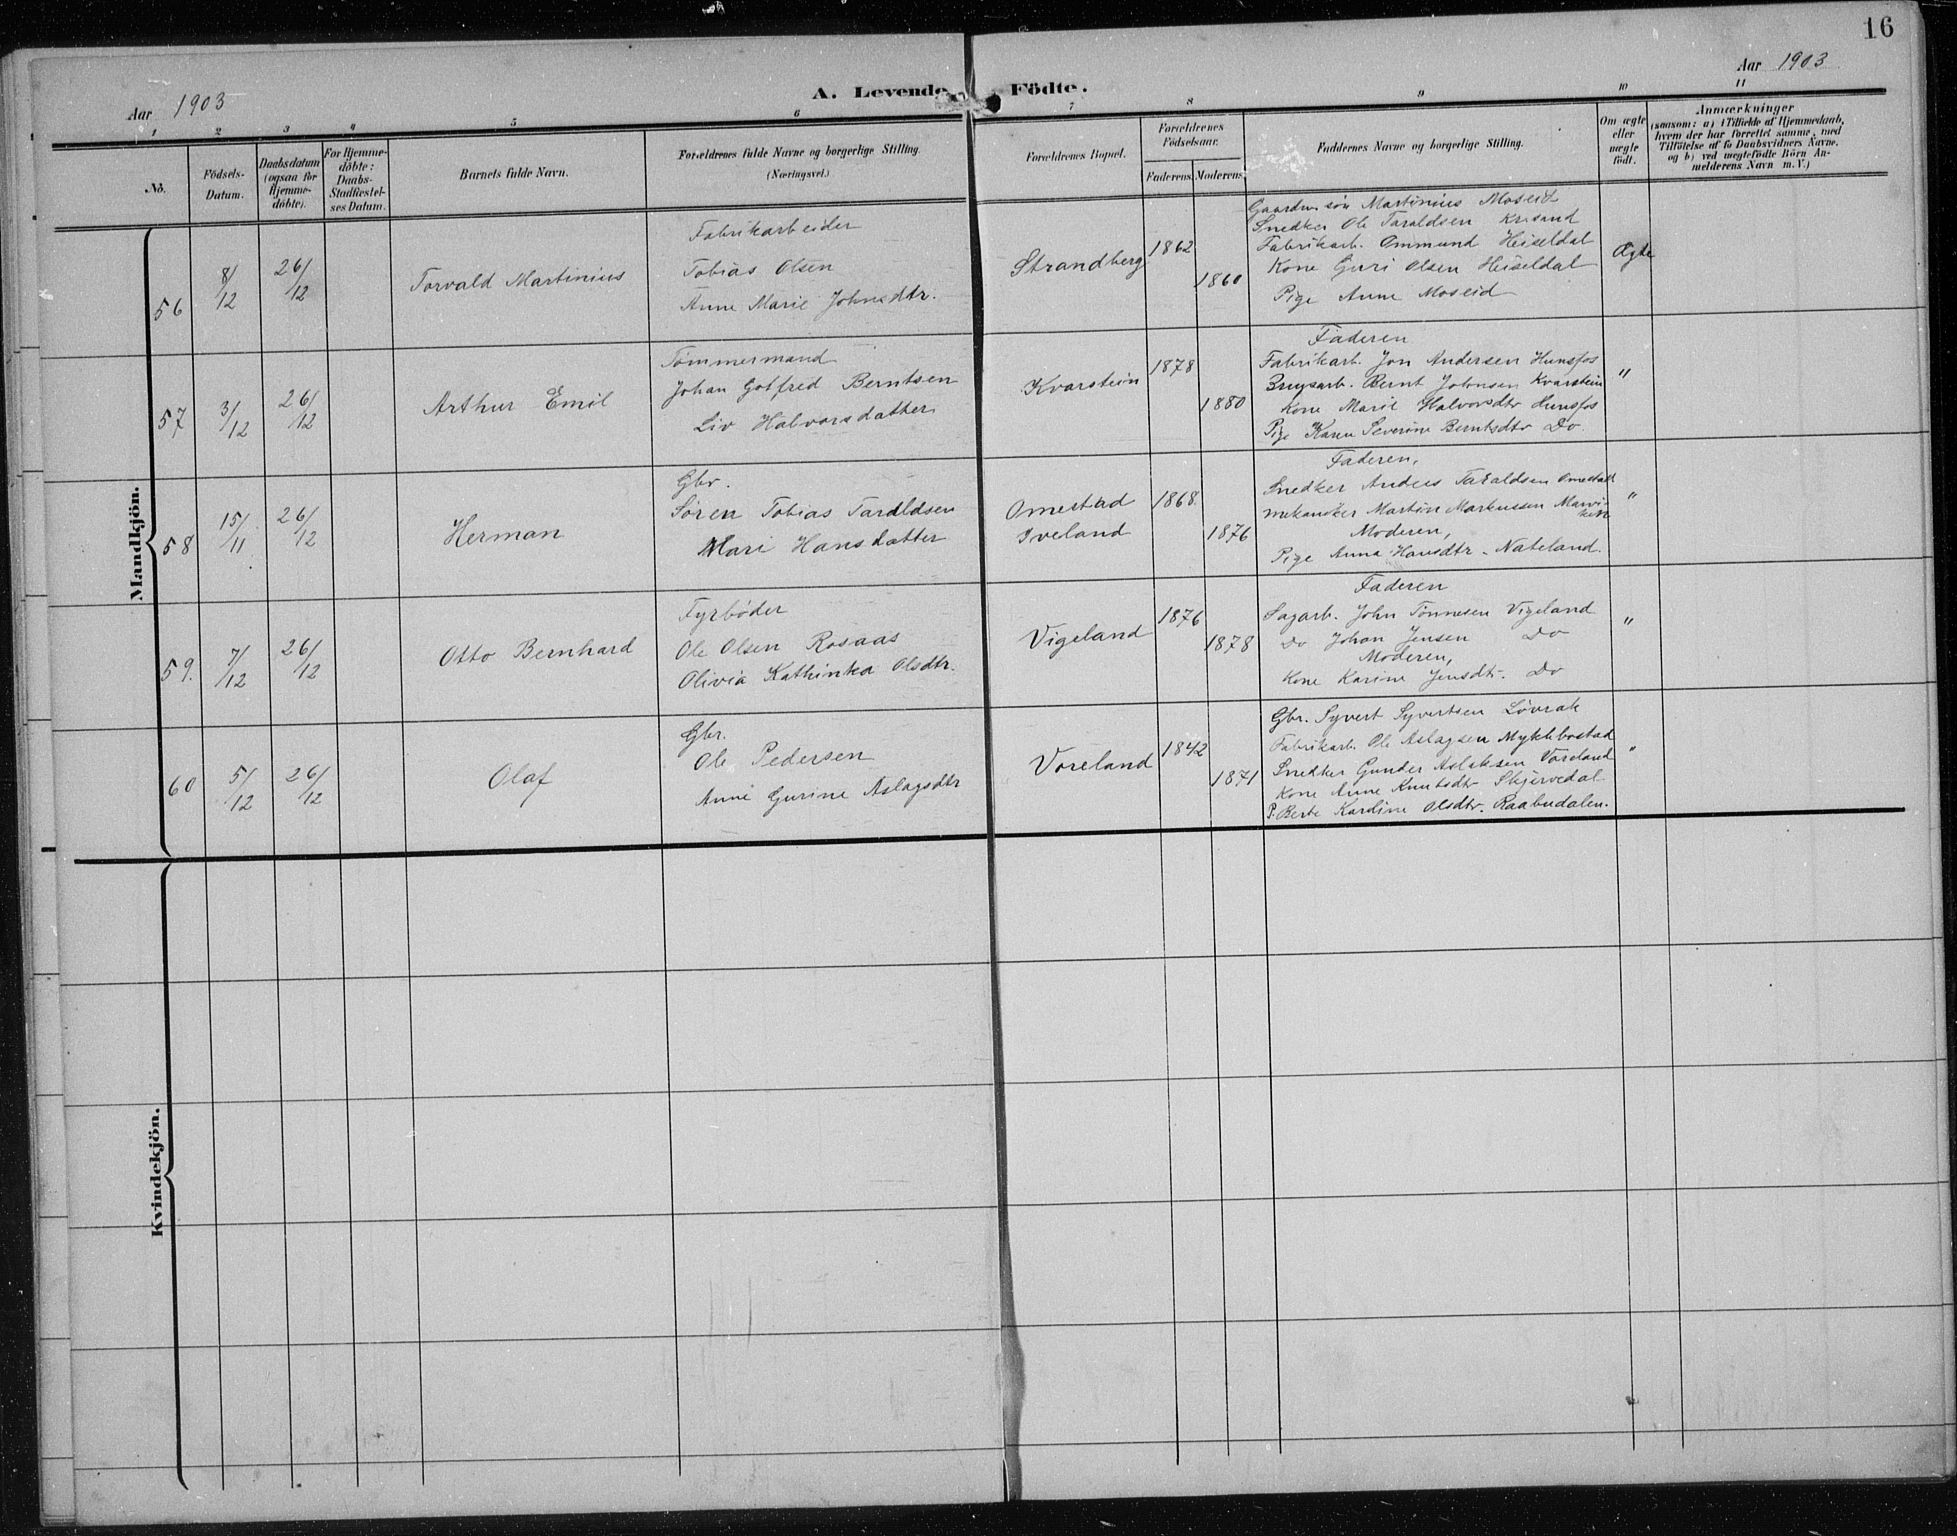 16
Aar 1903
A. Levende Födte.
Aar 1903
1 2 3 4 5 6 7 8 9 10 11
No.
Födsels-Datum.
Daabsdatum (ogsaa for Hjemme-döbte).
For Hjemme-döbte: Daabs-Stadfæstel-ses Datum.
Barnets fulde Navn.
Forældrenes fulde Navne og borgerlige Stilling.
(Næringsvei.)
Forældrenes Bopæl.
Forældrenes Födselsaar.
Faderens. Moderens.
Faddernes Navne og borgerlige Stilling.
Om ægte eller uægte födt.
Anmærkninger
(saasom: a) i Tilfælde af Hjemmedaab,
hvem der har forrettet samme, med
Tilföielse af to Daabsvidners Navne,
og b) ved uægtefödte Börn An-
melderens Navn m. V.)
Mandkjön.
56
8/12
26/12
Torvald Martinius
Fabrikarbeider
Tobias Olsen
Anne Marie Johnsdtr.
Strandberg
1862
1860
Gaardm. søn Martinius Moseid
Snedker Ole Taraldsen Krsand
Fabrikarb. Ommund Heiseldal
Kone Guri Olsen Heiseldal
Pige Anne Moseid
Ægte
57
3/12
26/12
Arthur Emil
Tømmermand
Johan Gotfred Berntsen
Liv Halvorsdatter
Kvarstein
1878
1880
Faderen
Fabrikarb. Jon Andersen Hunsfos
Brugsarb. Bernt Johnsen Kvarstein
Kone Marie Halvorsdtr Hunsfos
Pige Karen Severine Berntsdtr Do.
"
58
15/11
26/12
Herman
Gbr.
Søren Tobias Taraldsen
Mari Hansdatter
Omestad
Iveland
1868
1876
Faderen,
Snedker Anders Taraldsen Omestad
Mekaniker Martin Markussen
Moderen,
Pige Anna Hansdtr. Nateland.
"
59.
7/12
26/12
Otto Bernhard
Fyrbøder
Ole Olsen Rosaas
Olivia Kathinka Olsdtr.
Vigeland
1876
1878
Faderen
Sagarb. John Tønnesen Vigeland
Do Johan Jensen Do
Moderen,
Kone Karine Jensdtr. Do
"
60
5/12
26/12
Olaf
Gbr.
Ole Pedersen
Anne Gurine Aslagsdtr
Voreland
1842
1871
Gbr. Syvert Syvertsen Løvrak
Fabrikarb. Ole Aslagsen Myklebostad
Snedker Gunder Aslaksen Voreland
Kone Anne Knutsdtr Skjervedal
P. Berte Kardine Olsdtr. Raabudalen.
"
Kvindekjön.